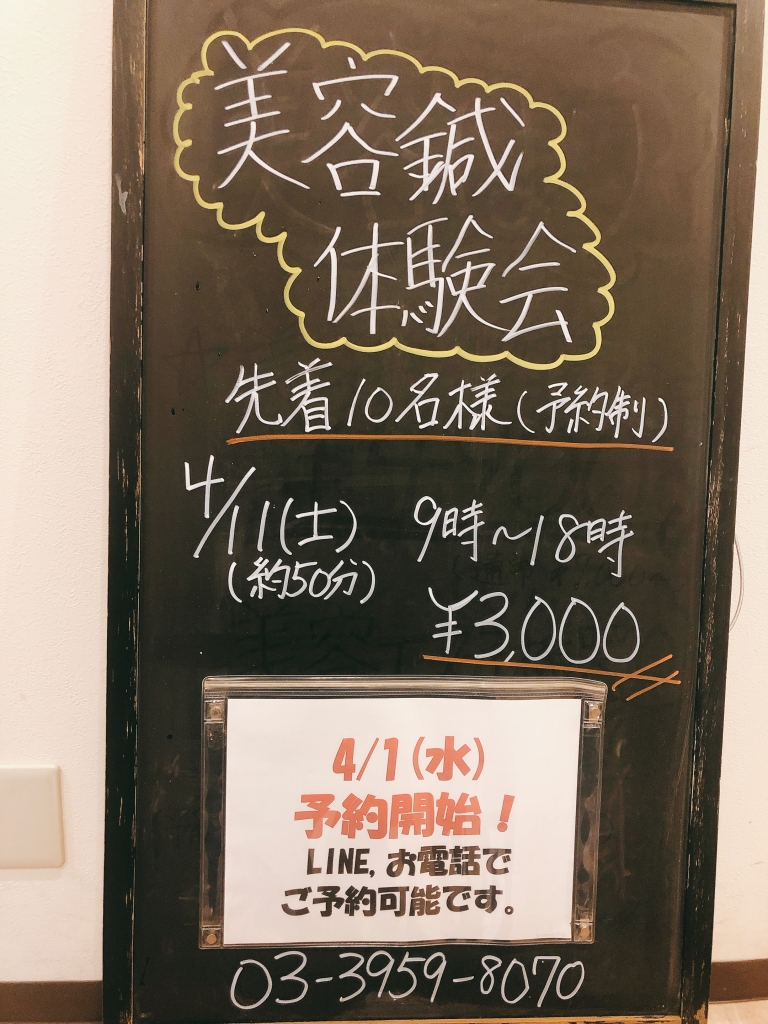 美容鍼
体験会
先着10名様(予約制)
4/11(土) 9時～18時
(約50分)
¥3,000
4/1(水)
予約開始！
LINE,お電話で
ご予約可能です。
03-3959-8070